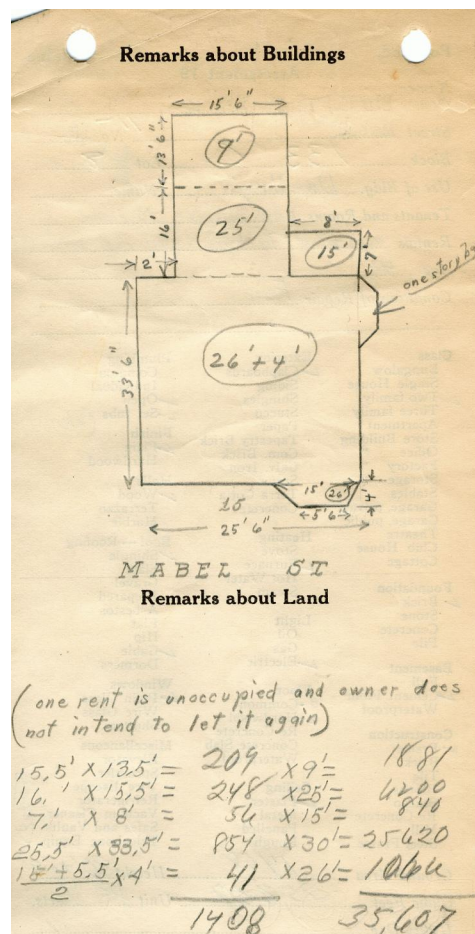 Remarks about Buildings
15' 6"
13' 6"
9'
16'
25'
8'
15'
7'
2'
one story
26' + 4'
33' 6"
15' 26' 4'
15 5' 6"
25' 6"
MABEL ST
Remarks about Land
(one rent is unoccupied and owner does
not intend to let it again)
15.5' X 13.5' = 209 X 9' = 1881
16.' X 15.5' = 248 X 25' = 6200
7.' X 8' = 56 X 15' = 840
25.5' X 33.5' = 854 X 30' = 25620
15' + 5.5' / 2 X 4' = 41 X 26' = 1066
1408 35,607